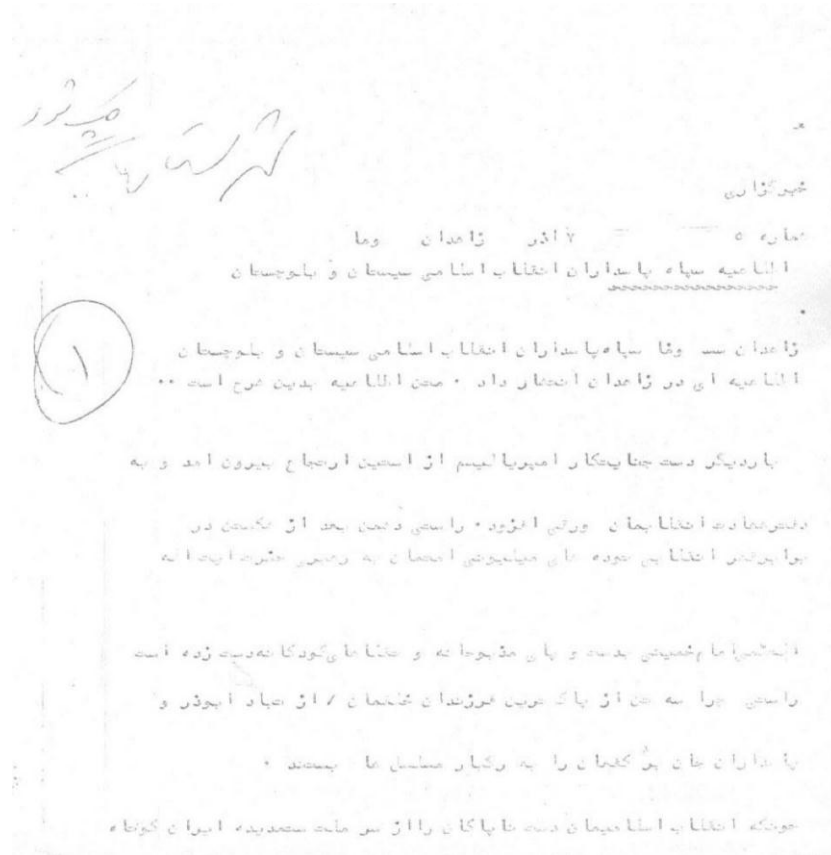 شهرستانها
خبرگزاری
شماره ۵ ۷ آذر زاهدان وفا
اطلاعیه سپاه پاسداران انقلاب اسلامی سیستان و بلوچستان
۱
زاهدان ــ وفا سپاه پاسداران انقلاب اسلامی سیستان و بلوچستان
اطلاعیه ای در زاهدان انتشار داد . متن اطلاعیه بدین شرح است ..
باردیگر دست جنایتکار امپریالیسم از استین ارتجاع بیرون امد و به
دفترشهادت انقلابمان ورقی افزود . راستی دشمن بعد از شکستن در
برابرقدر انقلابی توده های میلیونی امتمان به رهبری حضرت ایت اله
امام خمینی بدست و پای مذبوحانه و تقلاهای کودکانه دست زده است
راستی چرا سه تن از پاک ترین فرزندان خلقمان / از تبار ابوذر و
پاسداران جان بر کفمان را به رگبار مسلسل ها بستند .
چونکه انقلاب اسلامیمان دست ناپاکان را از سر ملت ستمدیده ایران کوتاه